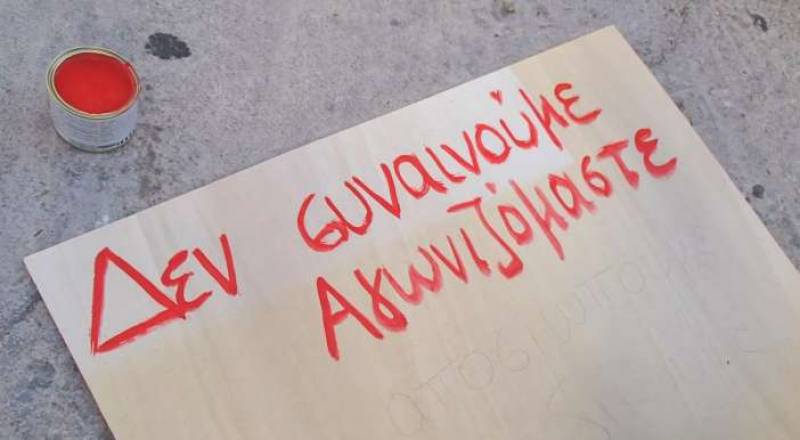 Δεν συναινούμε
Αγωνιζόμαστε